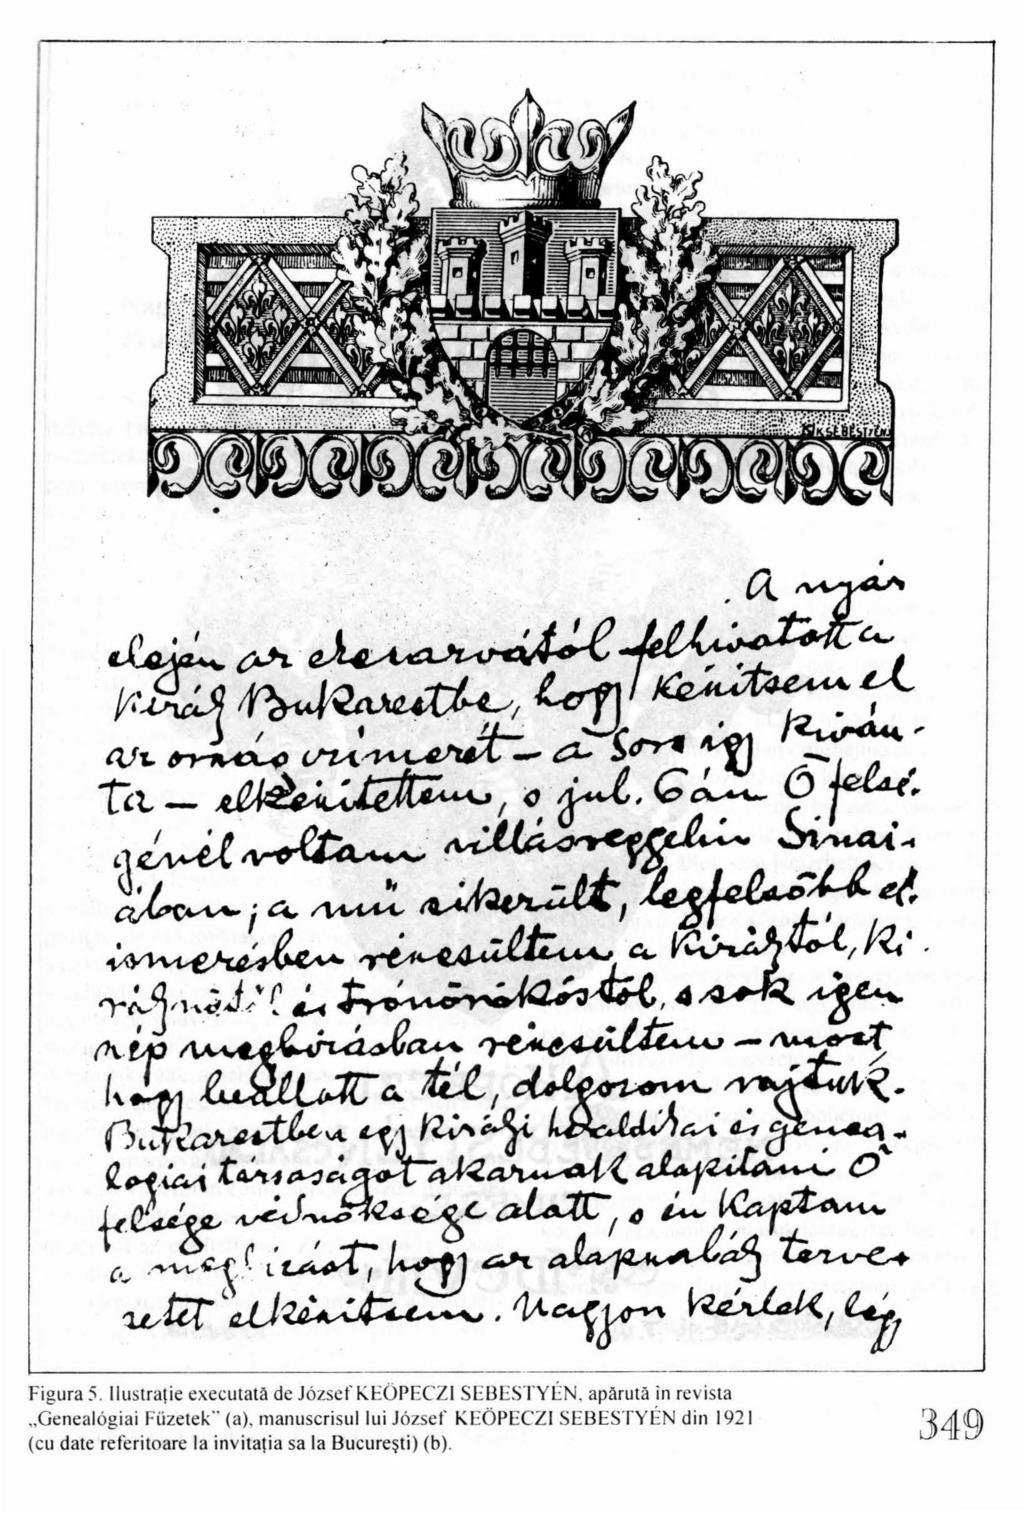 K. SEBESTYÉN
A nyár
elején az udvarától felhivatott a
Király Bukarestbe, hogy készitsem el
az ország czimerét – a Sors igy kiván-
ta – elkészitettem, s jul. 6án Ő felsé-
génél voltam villásreggelin Sinai-
ában; a mű sikerült, legfelsőbb el-
ismerésben részesültem a Királytól, Ki-
rálynőtől és trónörököstől, s sok igen
szép megbizásban részesültem – most,
hogy beállott a tél, dolgozom rajtuk.
Bukarestben egy Királyi heraldikai és genea-
logiai társaságot akarnak alapitani Ő
felsége védnöksége alatt, s én Kaptam
a megbizást, hogy az alapszabály terve-
zetét elkészitsem. Nagyon kérlek, légy
Figura 5. Ilustraţie executată de József KEÖPECZI SEBESTYÉN, apărută in revista
„Genealógiai Füzetek” (a), manuscrisul lui József KEÖPECZI SEBESTYÉN din 1921
(cu date referitoare la invitaţia sa la Bucureşti) (b).
349